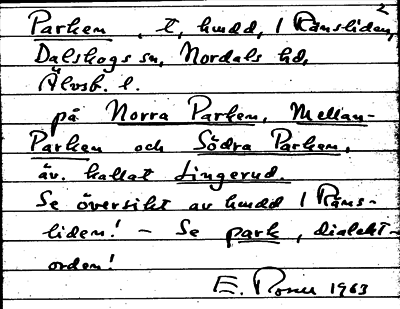 2
Parken, t, hmdd, 1 Ränsliden,
Dalskogs sn, Nordals hd,
Älvsb. l.
på Norra Parken, Mellan-
Parken och Södra Parken,
äv. kallat Lingerud.
Se översikt av hmdd 1 Räns-
liden! - Se park, dialekt-
orden!
E. 1963